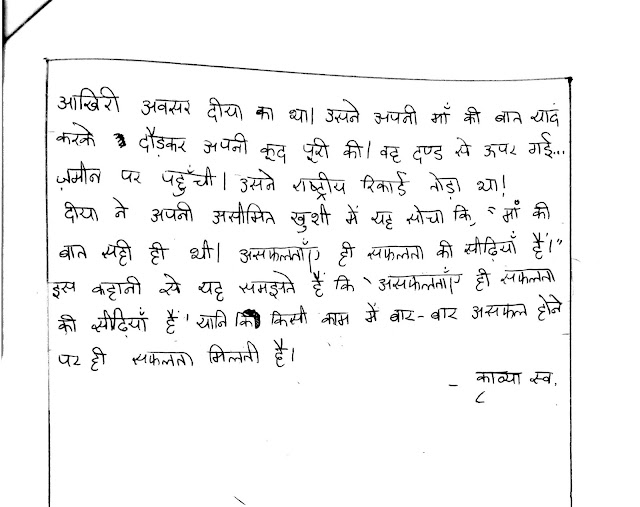 आखिरी अवसर दीया का था। उसने अपनी माँ की बात याद
करके दौड़कर अपनी कूद पूरी की। वह दण्ड से ऊपर गई...
ज़मीन पर पहुँची। उसने राष्ट्रीय रिकार्ड तोड़ा था!
दीया ने अपनी असीमित खुशी में यह सोचा कि, "माँ की
बात सही ही थी। असफलताएँ ही सफलता की सीढ़ियाँ हैं।"
इस कहानी से यह समझते हैं कि 'असफलताएँ ही सफलता
की सीढ़ियाँ हैं' यानि कि किसी काम में बार-बार असफल होने
पर ही सफलता मिलती है।
- काव्या स्व.